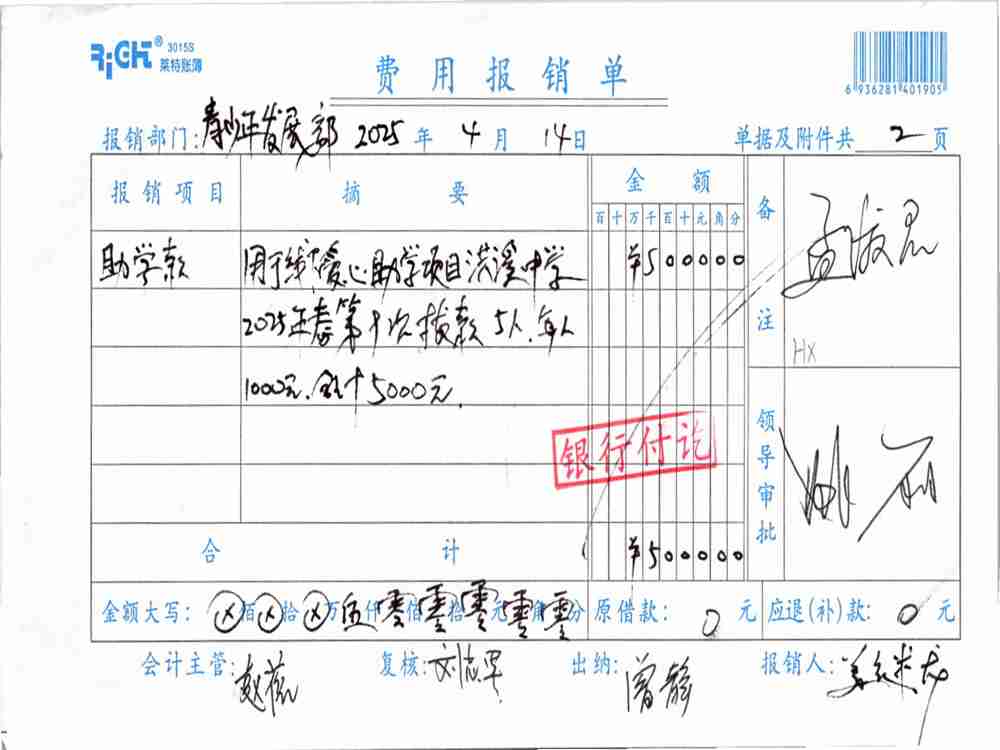 RiCH® 3015S
莱特账簿
费用报销单
6 936281 401905
报销部门: 青少年发展部 2025 年 4 月 14 日 单据及附件共 2 页
报销项目 摘要 金额 备注
百十万千百十元角分
助学款 用于 爱心助学项目洪溪中学 ¥500000
2025年春第十次拨款 5人.每人
1000元.合计5000元.
HX
银行付讫
领导审批
合计 ¥500000
金额大写: ⊗佰⊗拾⊗万伍仟零佰零拾零元零角零分 原借款: 0 元 应退(补)款: 0 元
会计主管: 复核: 出纳: 曾静 报销人: